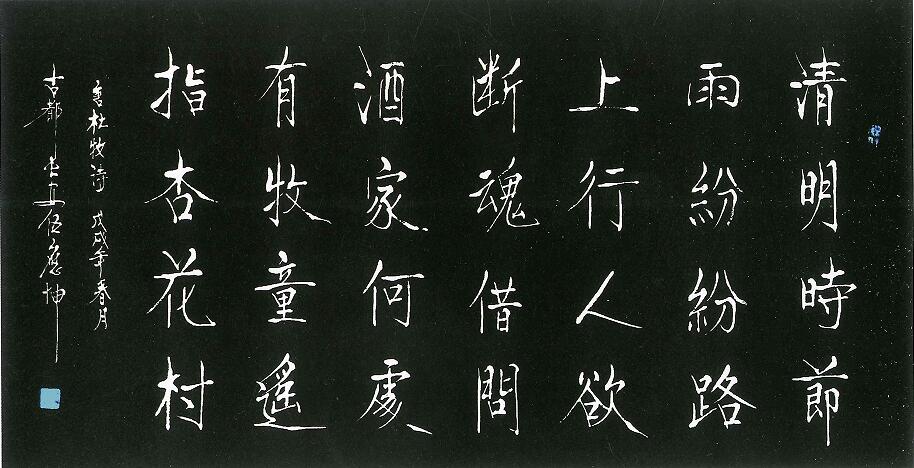 清明時節
雨紛紛路
上行人欲
断魂借問
酒家何處
有牧童遥
指杏花村
杜牧诗 戊戌年春月
古都